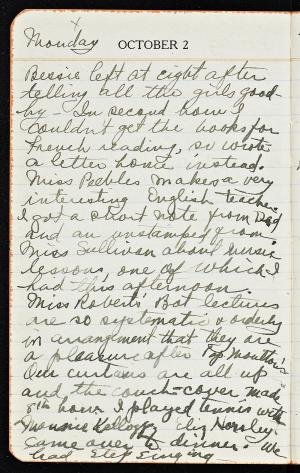 Monday OCTOBER 2
Bessie left at eight after
telling all the girls good-
by - In second hour I
couldn't get the books for
French reading, so wrote
a letter home instead.
Miss Peebles makes a very
interesting English teacher.
I got a short note from Dad
and an unstamped from
Miss Sullivan about music
lessons, one of which I
had this afternoon.
Miss Roberts' Bot lectures
are so systematic & orderly
in arrangement that they are
a pleasure after Moulton's
Our curtains are all up
and the couch-cover made
8th hour I played tennis with
Kellogg. Eliz Horsley
came over to dinner. We
had Step Singing